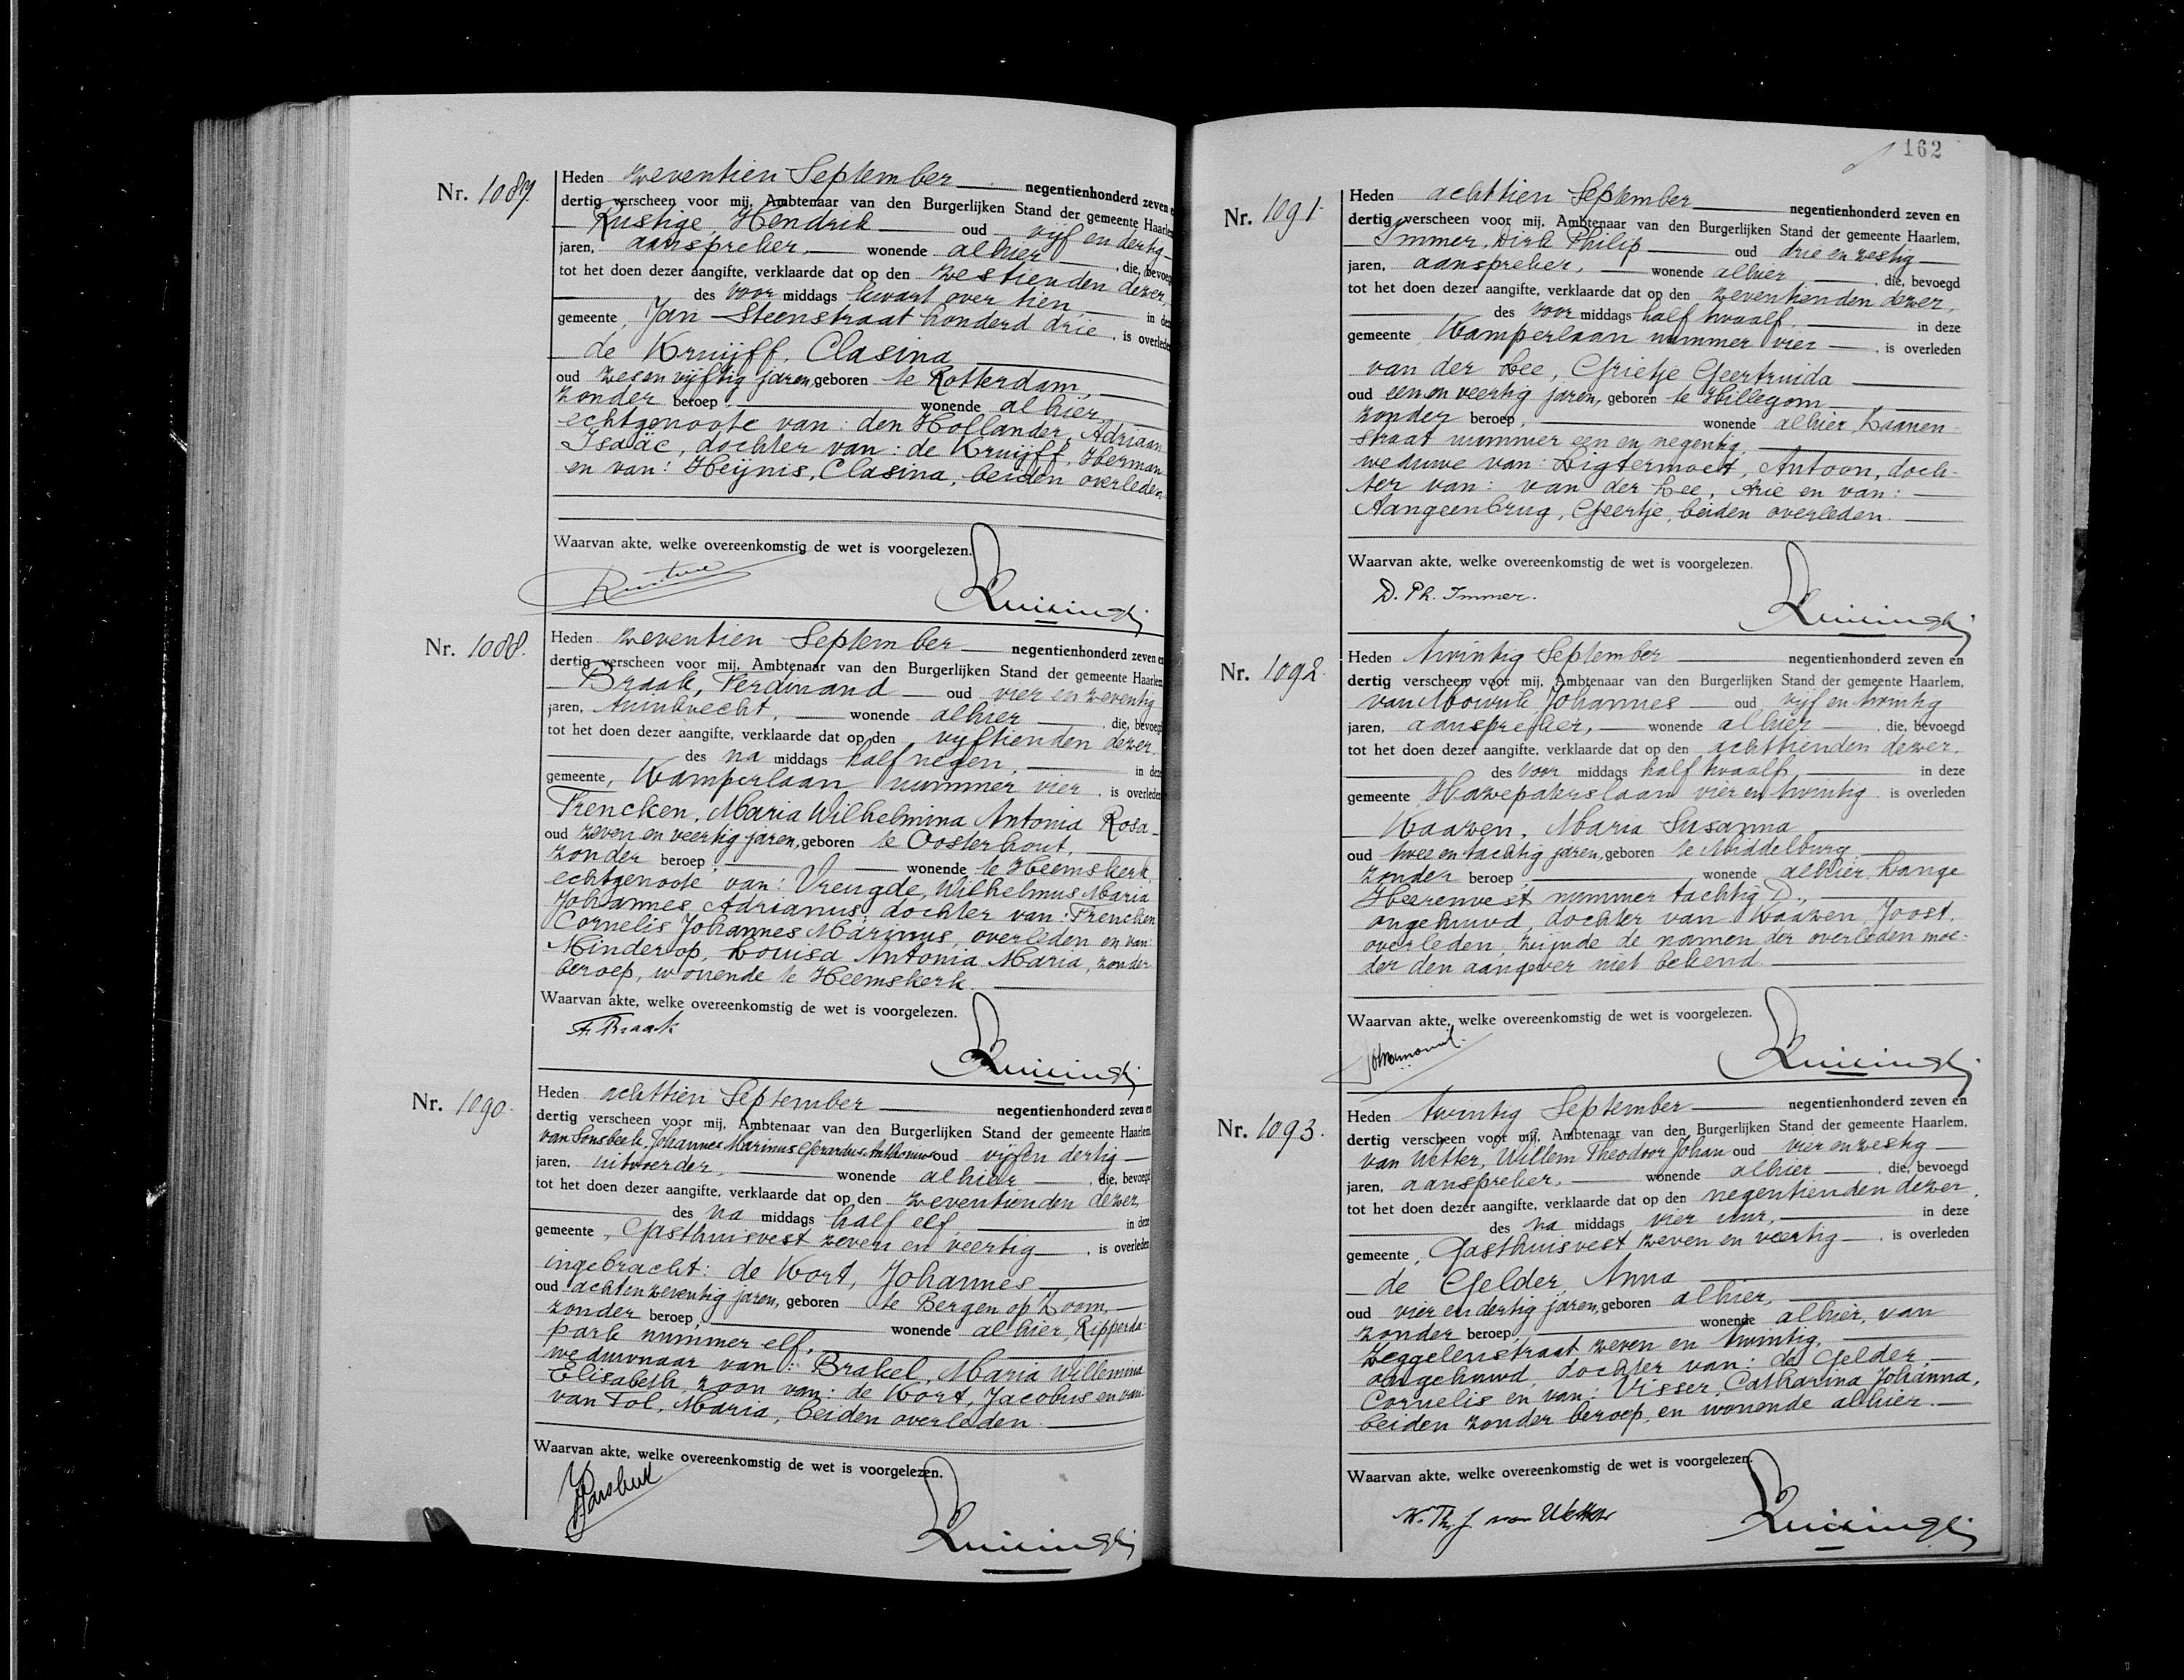 Nr. 1087.
Heden zeventien September negentienhonderd zeven en
dertig verscheen voor mij, Ambtenaar van den Burgerlijken Stand der gemeente Haarlem
Rustige, Hendrik oud vijf en dertig
jaren, aanspreker, wonende alhier, die, bevoegd
tot het doen dezer aangifte, verklaarde dat op den zestienden dezer,
des voor middags kwart over tien, in deze
gemeente, Jan Steenstraat honderd drie, is overleden
de Kruijff, Clasina
oud zes en vijftig jaren, geboren te Rotterdam,
zonder beroep, wonende alhier,
echtgenoote van: den Hollander, Adriaan
Isaäc, dochter van: de Kruijff, Herman
en van: Heijnis, Clasina, beiden overleden
Waarvan akte, welke overeenkomstig de wet is voorgelezen.
Nr. 1088.
Heden zeventien September negentienhonderd zeven en
dertig verscheen voor mij, Ambtenaar van den Burgerlijken Stand der gemeente Haarlem
Braak, Ferdinand oud vier en zeventig
jaren, tuinknecht, wonende alhier, die, bevoegd
tot het doen dezer aangifte, verklaarde dat op den vijftienden dezer
des na middags half negen, in deze
gemeente, Kamperlaan nummer vier, is overleden
Frencken, Maria Wilhelmina Antonia Rosa
oud zeven en veertig jaren, geboren te Oosterhout,
zonder beroep, wonende te Heemskerk,
echtgenoote van: Vreugde, Wilhelmus Maria
Johannes Adrianus, dochter van: Frencken
Cornelis Johannes Marinus, overleden en van:
Minderop, Louisa Antonia Maria, zonder
beroep, wonende te Heemskerk.
Waarvan akte, welke overeenkomstig de wet is voorgelezen.
F. Braak
Nr. 1090.
Heden achttien September negentienhonderd zeven en
dertig verscheen voor mij, Ambtenaar van den Burgerlijken Stand der gemeente Haarlem
van Sonsbeek, Johannes Marinus Gerardus Anthonius oud vijf en dertig
jaren, uitvoerder, wonende alhier, die, bevoegd
tot het doen dezer aangifte, verklaarde dat op den zeventienden dezer,
des na middags half elf, in deze
gemeente, Gasthuisvest zeven en veertig, is overleden
ingebracht: de Wort, Johannes
oud acht en zeventig jaren, geboren te Bergen op Zoom,
zonder beroep, wonende alhier, Ripperda-
park nummer elf,
weduwnaar van: Brakel, Maria Willemina
Elisabeth, zoon van: de Wort, Jacobus en van:
van Tol, Maria, beiden overleden.
Waarvan akte, welke overeenkomstig de wet is voorgelezen.
162
Nr. 1091.
Heden achttien September negentienhonderd zeven en
dertig verscheen voor mij, Ambtenaar van den Burgerlijken Stand der gemeente Haarlem,
Immer, Dirk Philip oud drie en zestig
jaren, aanspreker, wonende alhier, die, bevoegd
tot het doen dezer aangifte, verklaarde dat op den zeventienden dezer,
des voor middags half twaalf, in deze
gemeente, Kamperlaan nummer vier, is overleden
van der Lee, Grietje Geertruida
oud een en veertig jaren, geboren te Hillegom
zonder beroep, wonende alhier, Laanen-
straat nummer een en negentig,
weduwe van: Ligtermoet, Antoon, doch-
ter van: van der Lee, Arie en van:
Aangeenbrug, Geertje, beiden overleden.
Waarvan akte, welke overeenkomstig de wet is voorgelezen.
D. Ph. Immer.
Nr. 1092.
Heden twintig September negentienhonderd zeven en
dertig verscheen voor mij, Ambtenaar van den Burgerlijken Stand der gemeente Haarlem,
van Mourik, Johannes oud vijf en twintig
jaren, aanspreker, wonende alhier, die, bevoegd
tot het doen dezer aangifte, verklaarde dat op den achttienden dezer,
des voor middags half twaalf, in deze
gemeente, Hazepaterslaan vier en twintig, is overleden
Kaazen, Maria Susanna
oud twee en tachtig jaren, geboren te Middelburg,
zonder beroep, wonende alhier, Lange
Heerenvest nummer tachtig D.,
ongehuwd, dochter van Kaazen, Joost,
overleden, zijnde de namen der overleden moe-
der den aangever niet bekend.
Waarvan akte, welke overeenkomstig de wet is voorgelezen.
Nr. 1093.
Heden twintig September negentienhonderd zeven en
dertig verscheen voor mij, Ambtenaar van den Burgerlijken Stand der gemeente Haarlem,
van Wetter, Willem Theodoor Johan oud vier en zestig
jaren, aanspreker, wonende alhier, die, bevoegd
tot het doen dezer aangifte, verklaarde dat op den negentienden dezer,
des na middags vier uur, in deze
gemeente, Gasthuisvest zeven en veertig, is overleden
de Gelder, Anna
oud vier en dertig jaren, geboren alhier,
zonder beroep, wonende alhier, van
Zeggelenstraat zeven en twintig,
ongehuwd, dochter van: de Gelder,
Cornelis en van: Visser, Catharina Johanna,
beiden zonder beroep, en wonende alhier.
Waarvan akte, welke overeenkomstig de wet is voorgelezen.
W. Th. J. van Wetter